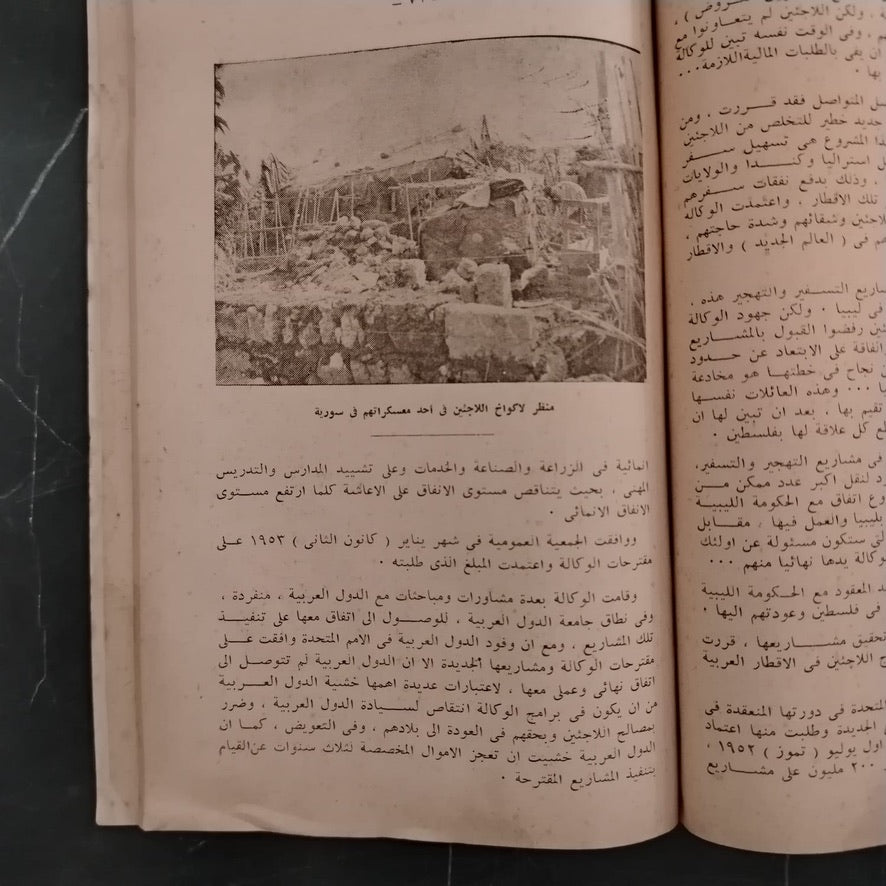 منظر لاكواخ اللاجئين فى احد معسكراتهم فى سورية
انمائية فى الزراعة والصناعة والخدمات وعلى تشييد المدارس والتدريس
المهنى ، بحيث يتناقص مستوى الانفاق على الاعاشة كلما ارتفع مستوى
الانفاق الانمائى ٠
ووافقت الجمعية العمومية فى شهر يناير ( كانون الثانى ) ١٩٥٣ على
مقترحات الوكالة واعتمدت المبلغ الذى طلبته ٠
وقامت الوكالة بعدة مشاورات ومباحثات مع الدول العربية ، منفردة ،
وفى نطاق جامعة الدول العربية ، للوصول الى اتفاق معها على تنفيذ
تلك المشاريع ، ومع ان وفود الدول العربية فى الامم المتحدة وافقت على
مقترحات الوكالة ومشاريعها الجديدة الا ان الدول العربية لم تتوصل الى
اتفاق نهائى وعملى معها ، لاعتبارات عديدة اهمها خشية الدول العربية
من ان يكون فى برامج الوكالة انتقاص لسيادة الدول العربية ، وضرر
بمصالح اللاجئين وبحقهم فى العودة الى بلادهم ، وفى التعويض ، كما ان
الدول العربية خشيت ان تعجز الاموال المخصصة لثلاث سنوات عن القيام
بتنفيذ المشاريع المقترحة ٠
، ولكن اللاجئين لم يتعاونوا مع
، وفى الوقت نفسه تبين للوكالة
ان يفى بالطلبات المالية اللازمة ...
بها ٠
المتواصل فقد قررت ، ومن
جديد خطير للتخلص من اللاجئين
المشروع هى تسهيل سفر
استراليا وكندا والولايات
، وذلك بدفع نفقات سفرهم
تلك الاقطار . واعتمدت الوكالة
وشقائهم وشدة حاجتهم ،
فى ( العالم الجديد ) والاقطار
التسفير والتهجير هذه .
فى ليبيا ٠ ولكن جهود الوكالة
رفضوا القبول بالمشاريع
على الابتعاد عن حدود
نجاح فى خطتها هو مخادعة
... وهذه العائلات نفسها
تقيم بها ، بعد ان تبين لها ان
كل علاقة لها بفلسطين ٠
فى مشاريع التهجير والتسفير،
لنقل اكبر عدد ممكن من
اتفاق مع الحكومة الليبية
بليبيا والعمل فيها ، مقابل
ستكون مسئولة عن اولئك
يدها نهائيا منهم ...
المعقود مع الحكومة الليبية
فى فلسطين وعودتهم اليها ٠
تحقيق مشاريعها ، قررت
اللاجئين فى الاقطار العربية
المتحدة فى دورتها المنعقدة فى
الجديدة وطلبت منها اعتماد
اول يوليو ( تموز ) ١٩٥٢ ،
٢٠٠ مليون على مشاريع